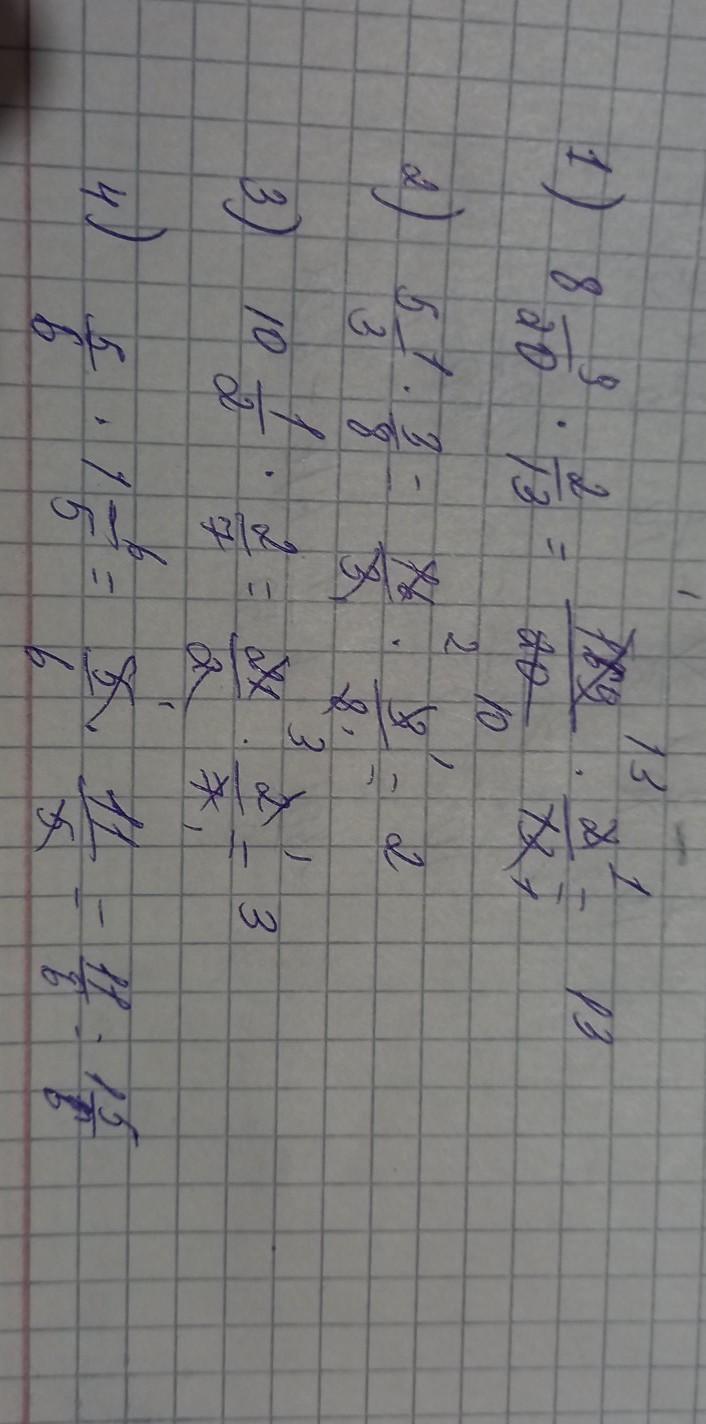 1) 8 9/20 · 2/13 = 169/20 · 2/13 = 13
2) 5 1/3 · 3/8 = 16/3 · 3/8 = 2
3) 10 1/2 · 2/7 = 21/2 · 2/7 = 3
4) 5/6 · 1 6/5 = 5/6 · 11/5 = 11/6 = 1 5/6